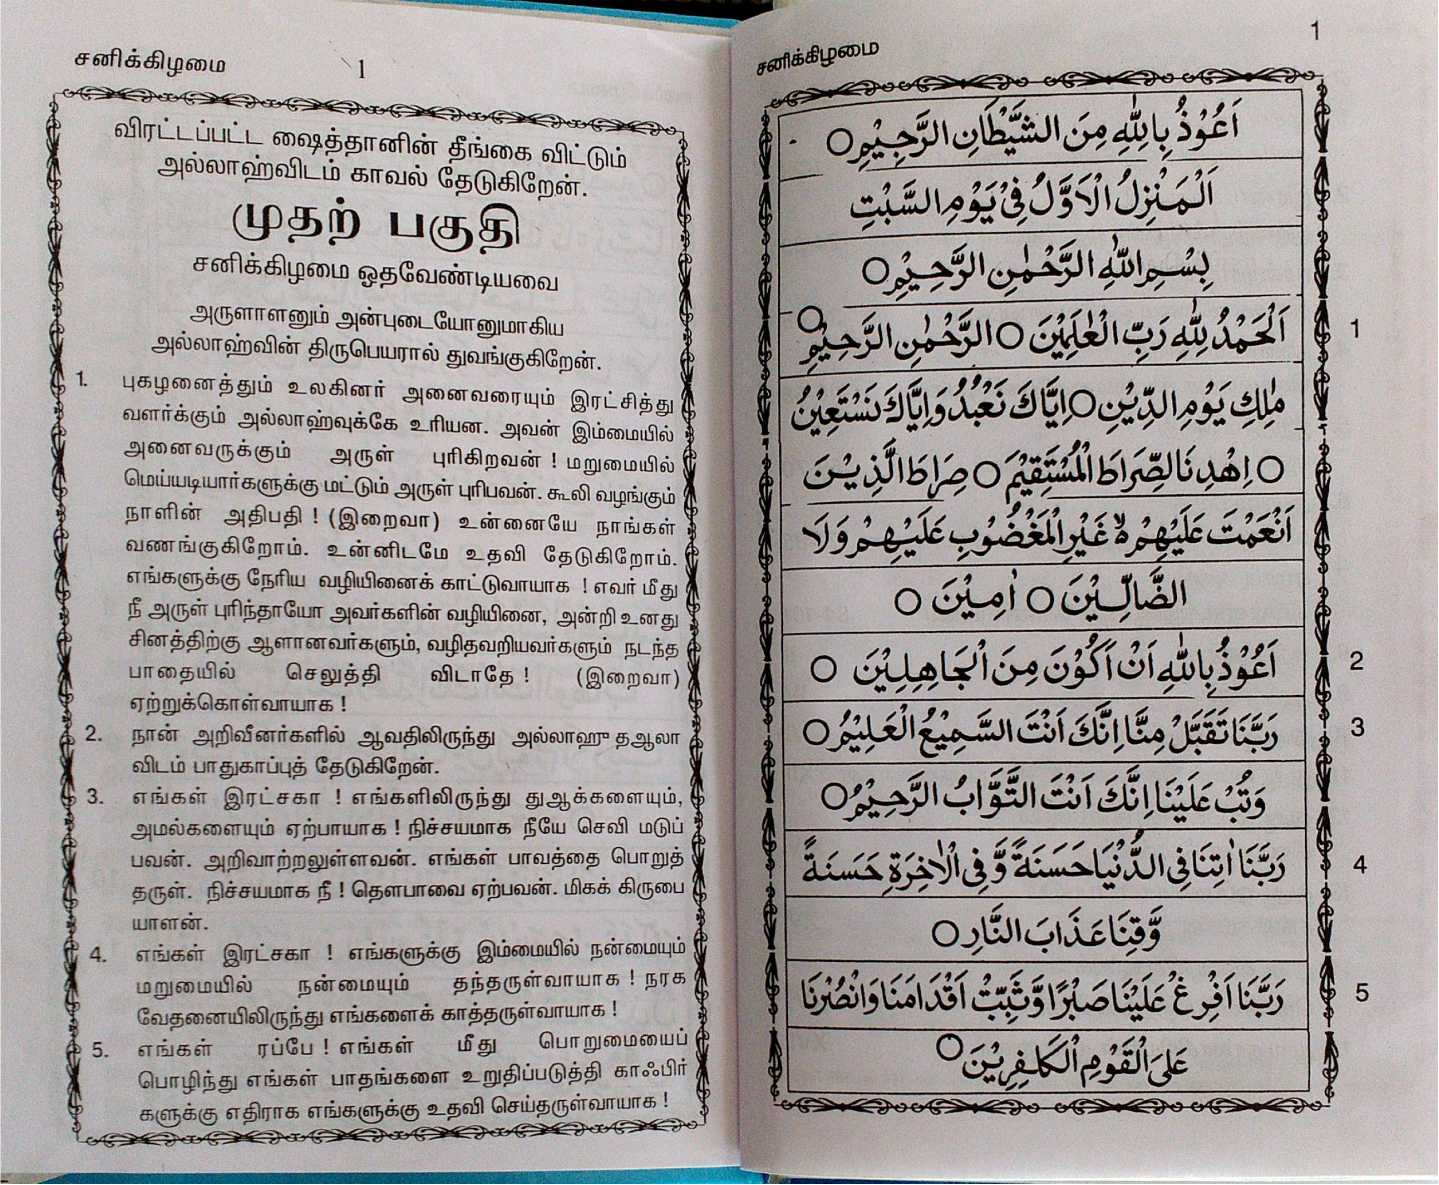 சனிக்கிழமை
1
விரட்டப்பட்ட ஷைத்தானின் தீங்கை விட்டும்
அல்லாஹ்விடம் காவல் தேடுகிறேன்.
முதற் பகுதி
சனிக்கிழமை ஓதவேண்டியவை
அருளாளனும் அன்புடையோனுமாகிய
அல்லாஹ்வின் திருபெயரால் துவங்குகிறேன்.
1. புகழனைத்தும் உலகினர் அனைவரையும் இரட்சித்து
வளர்க்கும் அல்லாஹ்வுக்கே உரியன. அவன் இம்மையில்
அனைவருக்கும் அருள் புரிகிறவன் ! மறுமையில்
மெய்யடியார்களுக்கு மட்டும் அருள் புரிபவன். கூலி வழங்கும்
நாளின் அதிபதி ! (இறைவா) உன்னையே நாங்கள்
வணங்குகிறோம். உன்னிடமே உதவி தேடுகிறோம்.
எங்களுக்கு நேரிய வழியினைக் காட்டுவாயாக ! எவர் மீது
நீ அருள் புரிந்தாயோ அவர்களின் வழியினை, அன்றி உனது
சினத்திற்கு ஆளானவர்களும், வழிதவறியவர்களும் நடந்த
பாதையில் செலுத்தி விடாதே ! (இறைவா)
ஏற்றுக்கொள்வாயாக !
2. நான் அறிவீனர்களில் ஆவதிலிருந்து அல்லாஹு தஆலா
விடம் பாதுகாப்புத் தேடுகிறேன்.
3. எங்கள் இரட்சகா ! எங்களிலிருந்து துஆக்களையும்,
அமல்களையும் ஏற்பாயாக ! நிச்சயமாக நீயே செவி மடுப்
பவன். அறிவாற்றலுள்ளவன். எங்கள் பாவத்தை பொறுத்
தருள். நிச்சயமாக நீ ! தௌபாவை ஏற்பவன். மிகக் கிருபை
யாளன்.
4. எங்கள் இரட்சகா ! எங்களுக்கு இம்மையில் நன்மையும்
மறுமையில் நன்மையும் தந்தருள்வாயாக ! நரக
வேதனையிலிருந்து எங்களைக் காத்தருள்வாயாக !
5. எங்கள் ரப்பே ! எங்கள் மீது பொறுமையைப்
பொழிந்து எங்கள் பாதங்களை உறுதிப்படுத்தி காஃபிர்
களுக்கு எதிராக எங்களுக்கு உதவி செய்தருள்வாயாக !
சனிக்கிழமை
1
اَعُوْذُ بِاللّٰهِ مِنَ الشَّيْطَانِ الرَّجِيْمِ ○
اَلْمَنْزِلُ الْاَوَّلُ فِيْ يَوْمِ السَّبْتِ
بِسْمِ اللّٰهِ الرَّحْمٰنِ الرَّحِيْمِ ○
اَلْحَمْدُ لِلّٰهِ رَبِّ الْعٰلَمِيْنَ ○ الرَّحْمٰنِ الرَّحِيْمِ ○ 1
مٰلِكِ يَوْمِ الدِّيْنِ ○ اِيَّاكَ نَعْبُدُ وَاِيَّاكَ نَسْتَعِيْنُ
○ اِهْدِنَا الصِّرَاطَ الْمُسْتَقِيْمَ ○ صِرَاطَ الَّذِيْنَ
اَنْعَمْتَ عَلَيْهِمْ ۙ غَيْرِ الْمَغْضُوْبِ عَلَيْهِمْ وَلَا
الضَّالِّيْنَ ○ اٰمِيْنَ ○
اَعُوْذُ بِاللّٰهِ اَنْ اَكُوْنَ مِنَ الْجَاهِلِيْنَ ○ 2
رَبَّنَا تَقَبَّلْ مِنَّا اِنَّكَ اَنْتَ السَّمِيْعُ الْعَلِيْمُ ○ 3
وَتُبْ عَلَيْنَا اِنَّكَ اَنْتَ التَّوَّابُ الرَّحِيْمُ ○
رَبَّنَا اٰتِنَا فِى الدُّنْيَا حَسَنَةً وَّفِى الْاٰخِرَةِ حَسَنَةً 4
وَّقِنَا عَذَابَ النَّارِ ○
رَبَّنَا اَفْرِغْ عَلَيْنَا صَبْرًا وَّثَبِّتْ اَقْدَامَنَا وَانْصُرْنَا 5
عَلَى الْقَوْمِ الْكَافِرِيْنَ ○